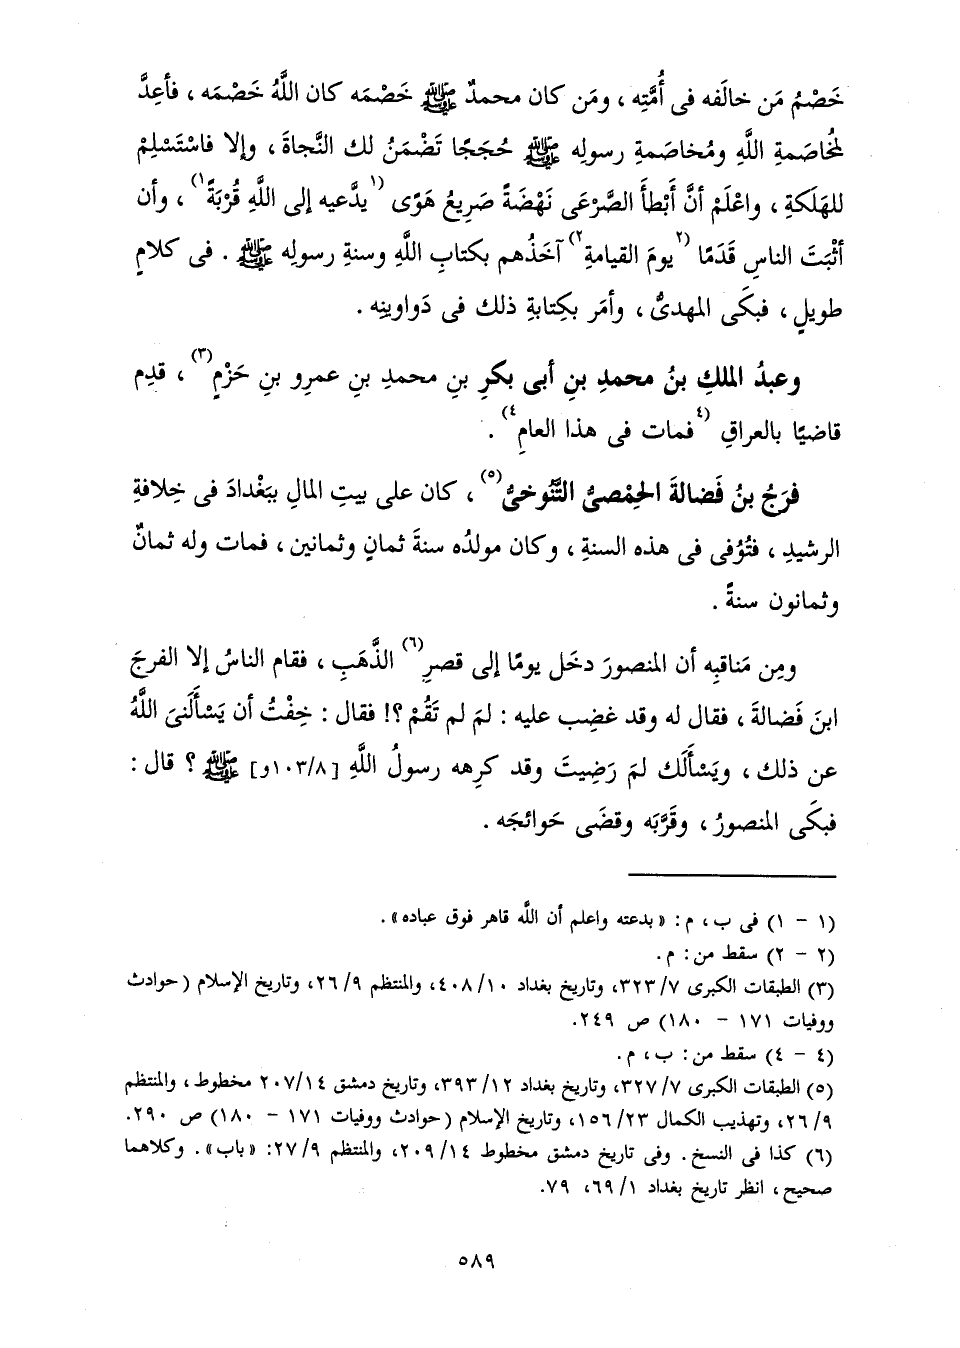 خَصْمُ مَن خالَفه فى أُمَّتِه ، ومَن كان محمدٌ ﷺ خَصْمَه كان اللَّهُ خَصْمَه ، فأَعِدَّ
لمُخاصَمةِ اللَّهِ ومُخاصَمةِ رسولِه ﷺ حُجَجًا تَضْمَنُ لك النَّجاةَ ، وإلا فاسْتَسْلِمْ
للهَلَكةِ ، واعْلَمْ أنَّ أَبْطأَ الصَّرْعَى نَهْضَةً صَرِيعُ هَوًى (١ يدَّعيه إلى اللَّهِ قُرْبَةً ١) ، وأن
أَثْبَتَ الناسِ قَدَمًا (٢ يومَ القيامةِ ٢) آخَذُهم بكتابِ اللَّهِ وسنةِ رسولِه ﷺ . فى كلامٍ
طويلٍ ، فبكَى المهدىُّ ، وأمَر بكِتابةِ ذلك فى دَواوينِه .
وعبدُ الملكِ بنُ محمدِ بنِ أبى بكرِ بنِ محمدِ بنِ عمرِو بنِ حَزْمٍ (٣) ، قدِم
قاضيًا بالعراقِ (٤ فمات فى هذا العامِ ٤) .
فرَجُ بنُ فَضالةَ الحِمْصىُّ التَّنُوخىُّ (٥) ، كان على بيتِ المالِ ببَغْدادَ فى خِلافةِ
الرشيدِ ، فتُوُفى فى هذه السنةِ ، وكان مولدُه سنةَ ثمانٍ وثمانين ، فمات وله ثمانٌ
وثمانون سنةً .
ومِن مَناقبِه أن المنصورَ دخَل يومًا إلى قصرِ (٦) الذَّهَبِ ، فقام الناسُ إلا الفرجَ
ابنَ فَضالةَ ، فقال له وقد غضِب عليه : لمَ لم تَقُمْ ؟! فقال : خِفْتُ أن يَسْأَلَنىَ اللَّهُ
عن ذلك ، ويَسْأَلَك لمَ رَضِيتَ وقد كرِهه رسولُ اللَّهِ [٨/١٠٣و] ﷺ ؟ قال :
فبكَى المنصورُ ، وقَرَّبَه وقضَى حَوائجَه .
(١ - ١) فى ب ، م : « بدعته واعلم أن اللَّه قاهر فوق عباده » .
(٢ - ٢) سقط من : م .
(٣) الطبقات الكبرى ٧/٣٢٣، وتاريخ بغداد ١٠/٤٠٨، والمنتظم ٩/٢٦، وتاريخ الإسلام (حوادث
ووفيات ١٧١ - ١٨٠) ص ٢٤٩.
(٤ - ٤) سقط من : ب ، م .
(٥) الطبقات الكبرى ٧/٣٢٧، وتاريخ بغداد ١٢/٣٩٣، وتاريخ دمشق ١٤/٢٠٧ مخطوط ، والمنتظم
٩/٢٦، وتهذيب الكمال ٢٣/١٥٦، وتاريخ الإسلام (حوادث ووفيات ١٧١ - ١٨٠) ص ٢٩٠.
(٦) كذا فى النسخ . وفى تاريخ دمشق مخطوط ١٤/٢٠٩، والمنتظم ٩/٢٧: « باب » . وكلاهما
صحيح ، انظر تاريخ بغداد ١/٦٩، ٧٩.
٥٨٩